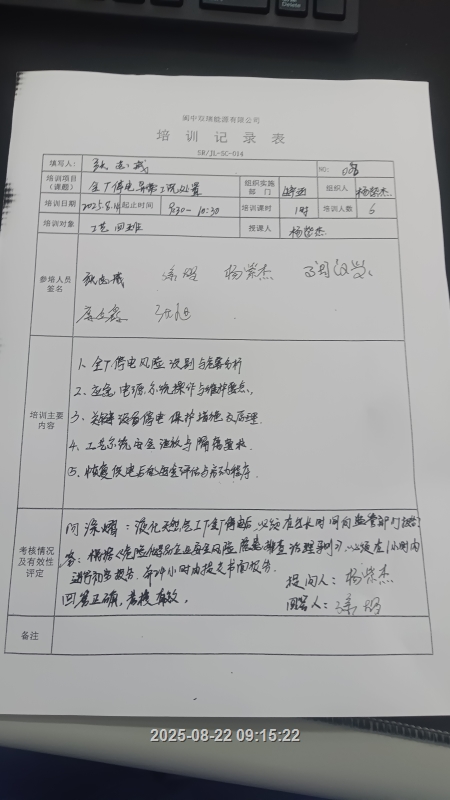 阆中双瑞能源有限公司
培训记录表
SR/JL-SC-014
填写人: 张志诚 NO:
培训项目(课题) 全厂停电异常工况处置 组织实施部门 组织人 杨崇杰
培训日期 2025.8.14 起止时间 9:30— 10:30 培训课时 1时 培训人数 6
培训对象 工艺四班 授课人 杨崇杰
参培人员签名 张志诚 涂熠 杨崇杰
培训主要内容
1、全厂停电风险识别与危害分析
2、应急电源系统操作与维护要点,
3、关键设备停电保护措施及原理
4、工艺系统安全泄放与隔离要求
5、恢复供电后的安全评估与启动程序.
考核情况及有效性评定
问涂熠:液化天然气工厂全厂停电后,必须在多长时间向监管部门报告?
答:根据《危险化学品企业安全风险隐患排查治理导则》,必须在1小时内
进行初步报告.和24小时内提交书面报告.
提问人:杨崇杰
回答正确,考核有效。
回答人:涂熠
备注
2025-08-22 09:15:22